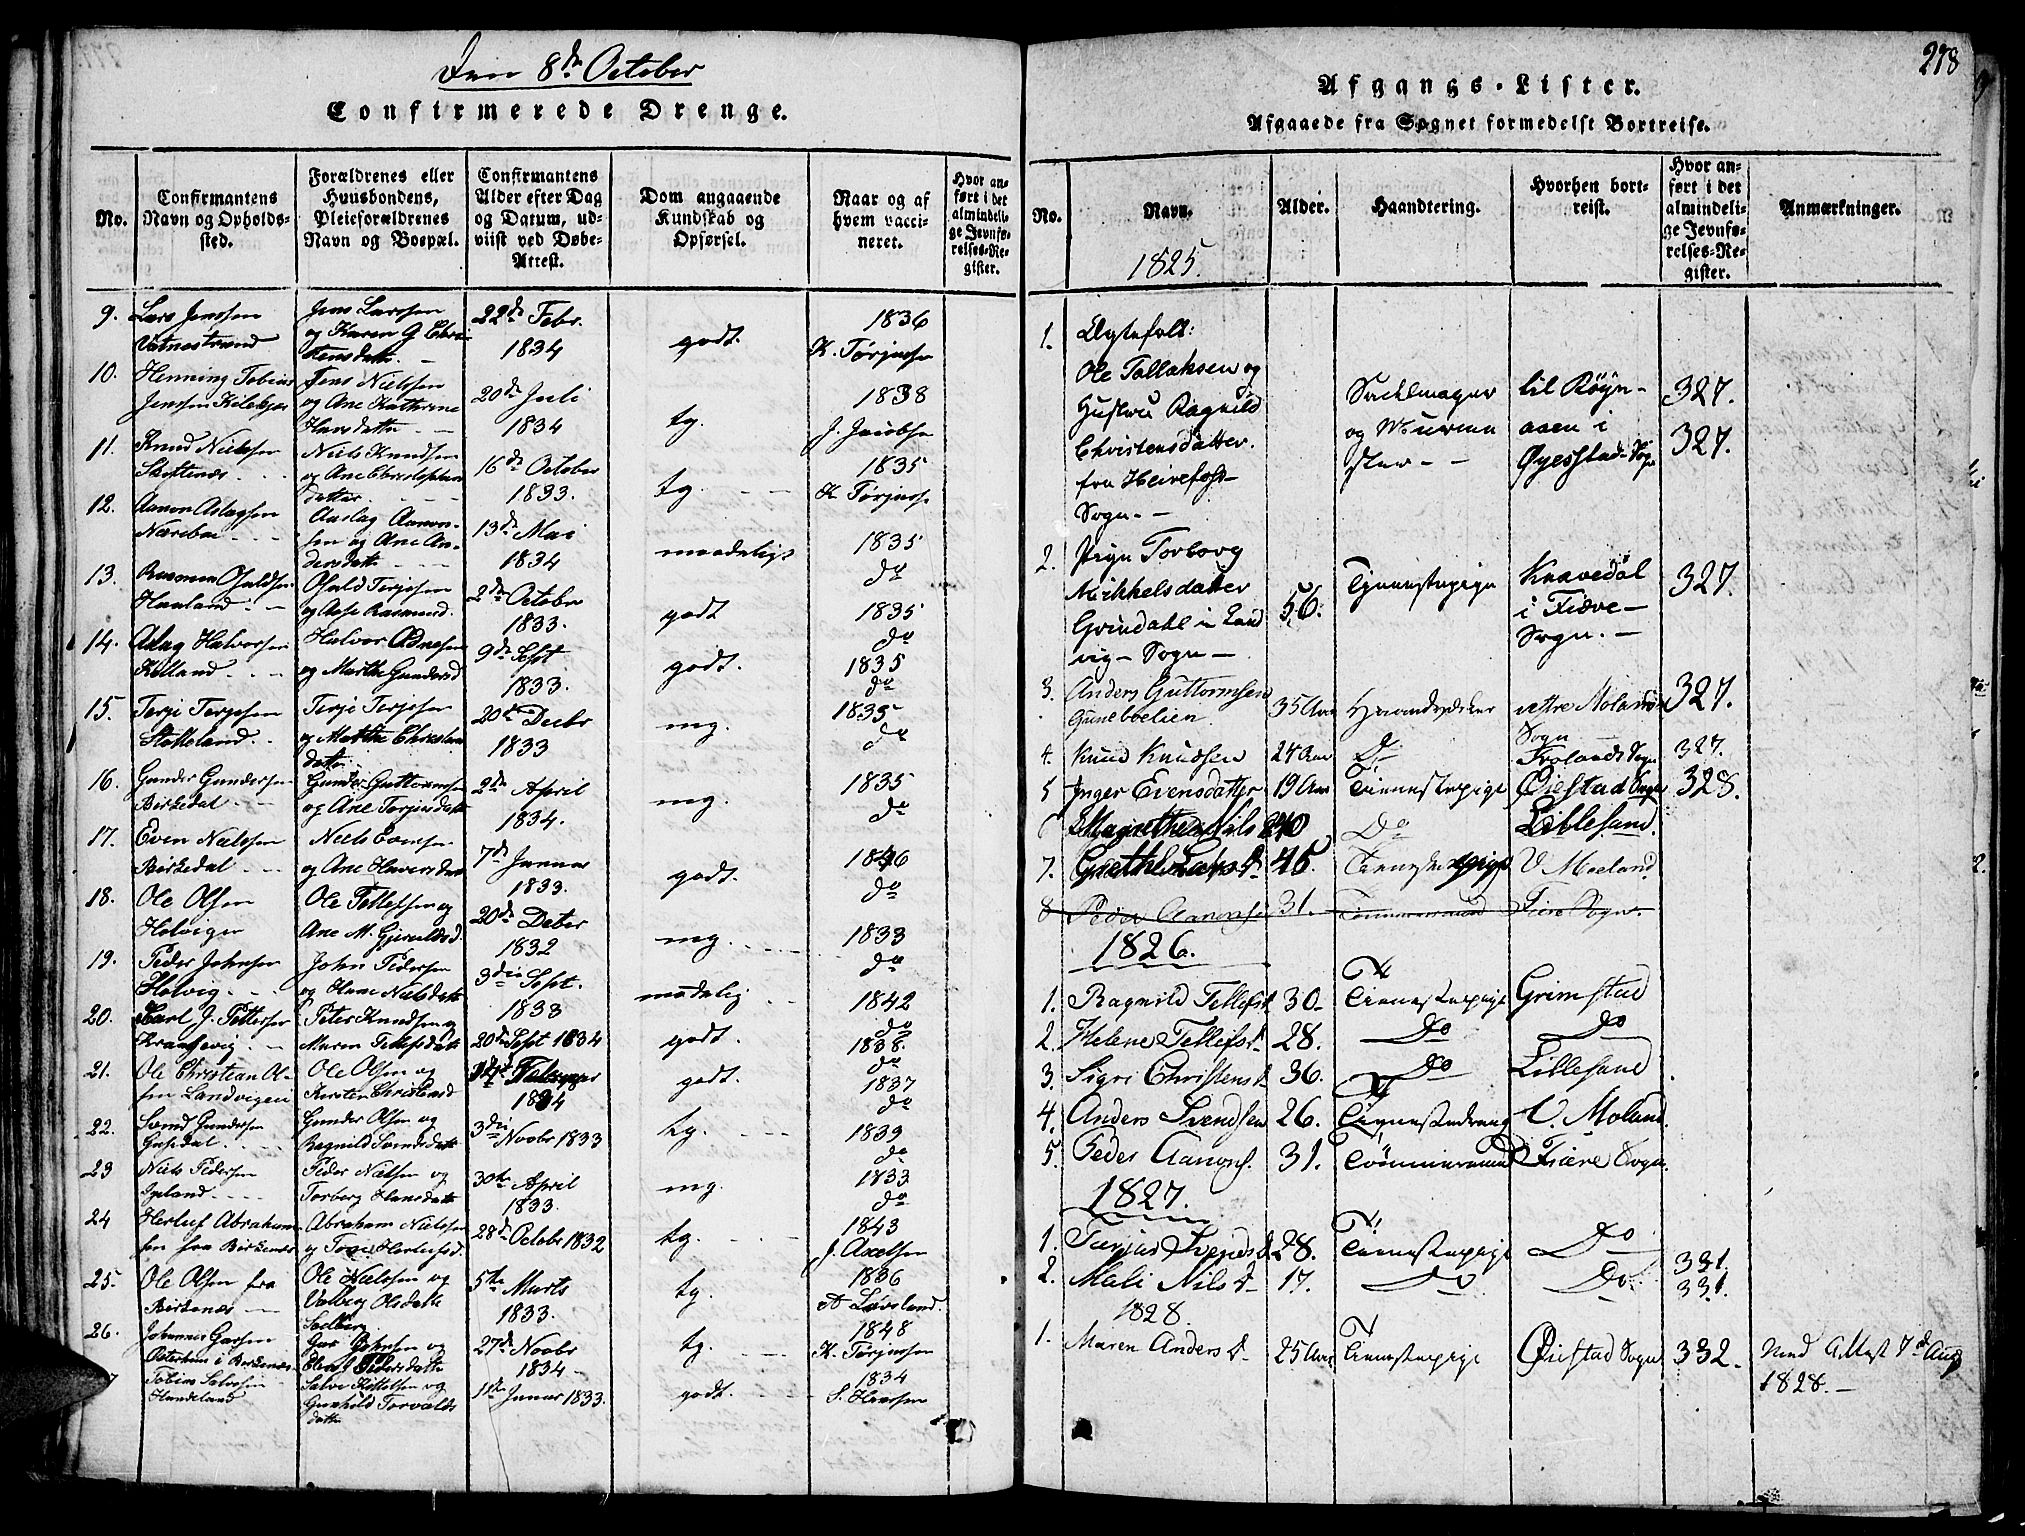 Den 8de October
Confirmerede Drenge.
No.
Confirmantens
Navn og Opholds-
sted.
Forældrenes eller
Huusbondens,
Pleieforældrenes
Navn og Bospæl.
Confirmantens
Alder efter Dag
og Datum, ud-
viist ved Døbe-
Attest.
Dom angaaende
Kundskab og
Opførsel.
Naar og af
hvem vacci-
neret.
Hvor an-
ført i det
almindeli-
ge Jevnfø-
relses-Re-
gister.
9. Lars Jenssen
Vatnestrand
Jens Larssen
og Karen G. Chri-
stensdatt. —
22de Febr.
1834
godt.
1836
K. Tørjussen
10. Henning Tobias
Jenssen
Jens Nielssen
og Ane Kathrine
Hansdatte — —
20de Juli
1834
tg.
1838
J. Jacobsen
11. Knud Nielssen
Niels Knudssen
og Ane
datter
16de October
1833.
tg. — —
1835
K. Tørjussen
12. Aanon Aslagsen
Aaslag Aanon-
sen og Ane An-
dersdatt
13de Mai
1834
maadeligt
1835
do
13. Rasmus Osuldsen
Haaland
Osuld Terjesen
og Aase Rasmusd.
2den October
1833.
godt
1835
do
14. Aslag Halvorsen
Kolland
Halvor Ednesen
og Marthe Gundersd
9de Sept
1833.
godt.
1835
do
15. Terje Terjesen
Stokkeland
Terje Terjesen
og Marthe Christens
datte
20de Decbr
1833
mg.
1835
do
16. Gunder Gundersen
Birkedal
Gunder Guttormsen
og Ane Terjesdatt
2den April
1834.
mg.
1835
do
17. Even Nielssen
Birkedal
Niels Evensen
og Ane
7de Januar
1833.
godt.
1846
do
18. Ole Olsen
Holvigen
Ole Tellefsen og
Ane M.
20de Decbr
1832
mg.
1833
do
19. Peder Johnsen
Holvig
John Pedersen
og Hane Nielsdatt
3die Sept.
1833
maadelig
1842
do
20. Carl J. Pettersen
Peter Knudsen og
Maren Tellefsdatt
20de Sept 1834
godt.
1838
do
21. Ole Christian Ol-
sen Landvigen
Ole Olsen og
Kirsten Christensd
1834
godt.
1837
do
22. Svend Gundersen
Gunder Olsen og
Ragnild Svendsdatt
3die Novbr 1833
tg.
1839
do
23 Niels Pedersen
Igland
Peder Nielsen og
Torborg Hansdatt
30te April
1833.
mg.
1833
do
24 Herluf Abraham-
sen fra Birkenæs
Abraham Nielssen
og Tone Herlufsd.
28de Octobr 1832
tg.
1843
J. Axelsen
25. Ole Olsen fra
Birkenæs
Ole Nielssen og
Valborg Olsdatte
5te Marts
1833.
tg.
1836
A Løvsland.
26. Johannes
i Birkenæs
Johnsen og
Pedersdatte
27de Novbr
1834 —
tg.
1848
K. Tørjussen
7 Tobias Salvesen
Salve Kittelsen og
Gunhild Torvalds
datte
11te Januar 1833.
godt.
1834
S. Hanssen
278
Afgangs-Lister.
Afgaaede fra Sognet formedelst Bortreise.
No.
Navn.
1825.
Alder.
Haandtering.
Hvorhen bort-
reist.
Hvor an-
ført i det
almindeli-
ge Jevnfø-
relses-Re-
gister.
Anmærkninger.
1. Ægtefolk:
Ole Tallaksen og
Hustru Ragnild
Christensdatter.
fra Heirefoss
Sogn. —
Sadelmager
og Murme
ster — —
til Røyn-
aasen i
Øyestad Sogn
327.
327.
2. Pigen Torborg
Mikkelsdatter
Grindahl i Land
vig — Sogn —
56.
Tjenestepige
Knævedal
i Fiære —
Sogn. —
327.
3. Anders Guttormsen
35 Aar
Haandværker
vestre Moland
Sogn
327.
4. Knud Knudsen 24 Aar Do Frolands Sogn 327.
5 Inger Evensdatter 19 Aar Tienestepige Øiestad Sogn 328.
6 Magrethe Nils 20 Do Lillesand.
7. 45. Tienestepige V. Moeland
8 Peder Aanonsen 31. Tømmermand Fiære Sogn.
1826.
1. Ragnild Tellefsd. 30 Tienestepige Grimstad
2. Helene Tellefsd. 28. Do Do
3. Sigri Christensd. 36. Do Lillesand
4. Anders Svendsen 26. Tienestedreng V. Moland.
5. Peder Aanons. 31. Tømmermand Fiære Sogn.
1827.
1. Svends D 28. Tienestepige Do 331.
2. Mali Nils D. 17. Do Do 331.
1828.
1. Maren Anders D. 25 Aar Tienestepige Øiestad Sogn 332. Med Attest 7de Aug
1828. —